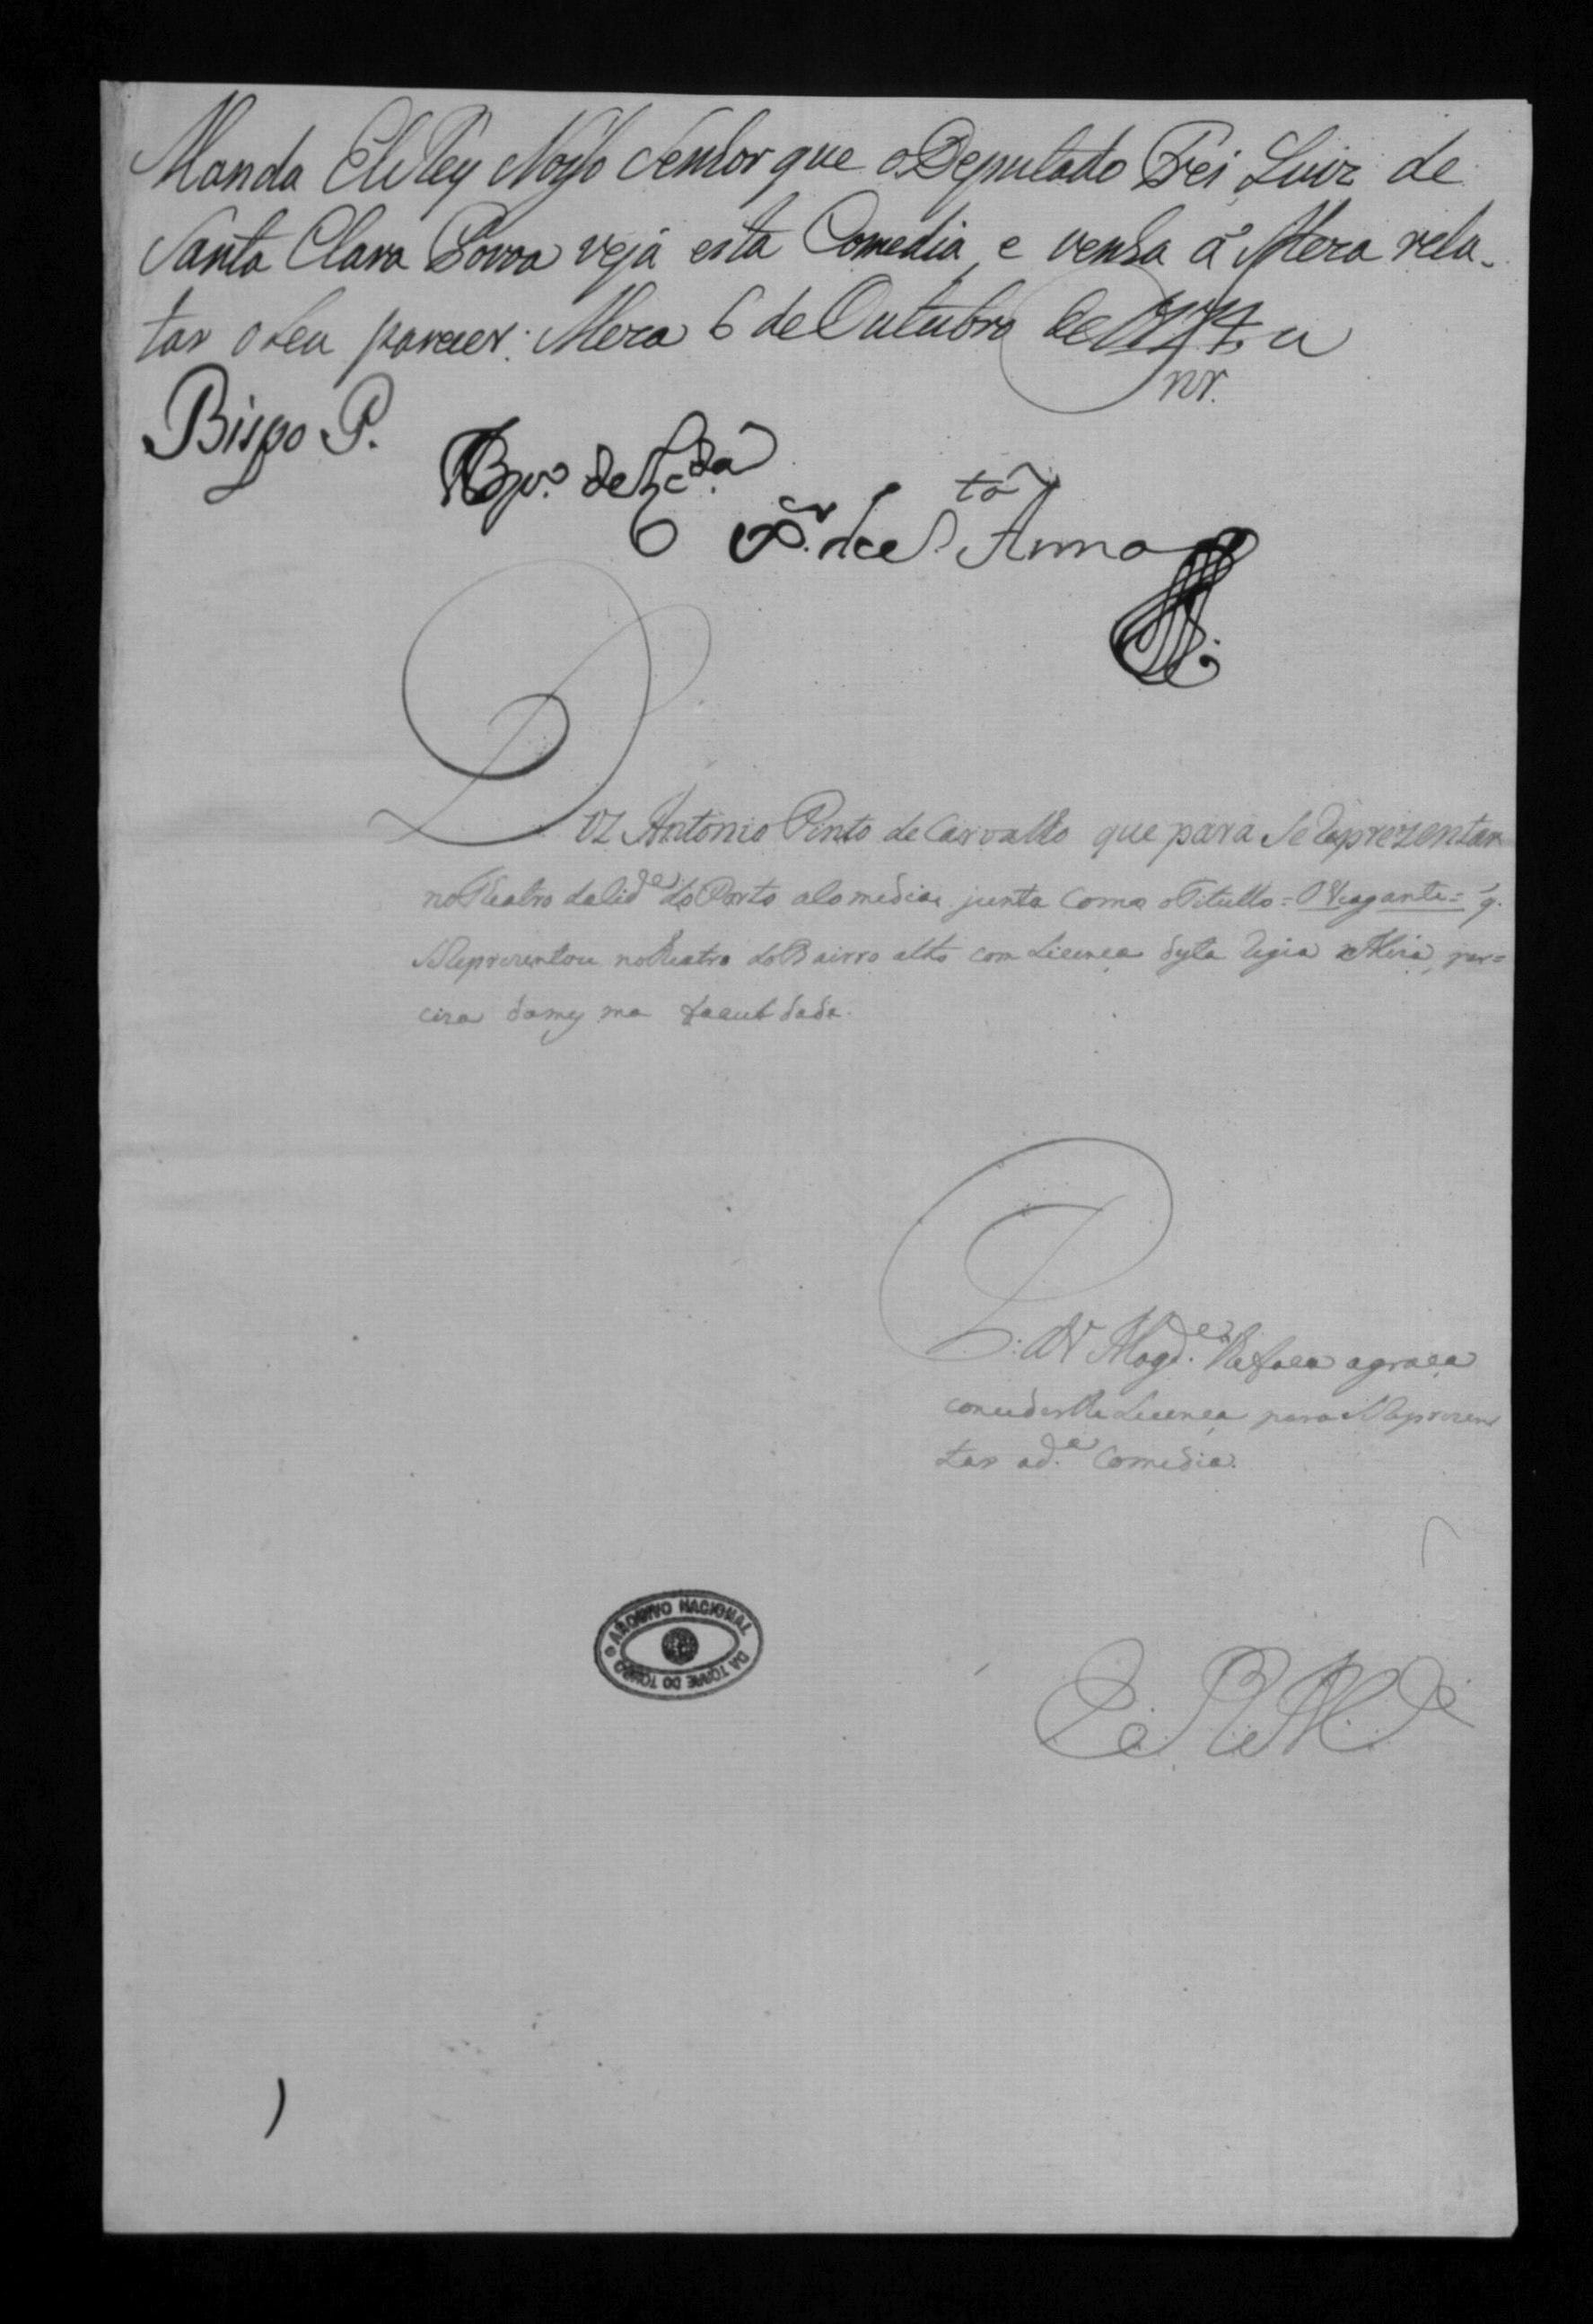 Manda ElRey Nosso Senhor que o Deputado Frei Luiz de
Santa Clara Povoa veja esta Comedia, e venha á Meza rela-
tar o seu parecer. Meza 6 de Outubro de 1774
Bispo P.
Sta Anna
Diz Antonio Pinto de Carvalho que para se Reprezentar
no Teatro da Cide do Porto a Comedia junta com o Titullo = O Extravagante = q.
se Reprezentou no Teatro do Bairro alto com Licença desta Regia Meza, per=
ciza da mesma faculdade.
P. a V Magde. lhe faca a graça
concederlhe Licença para se Reprezen
tar a d.a Comedia.
E. R. M.ce
ARCHIVO NACIONAL DA TORRE DO TOMBO